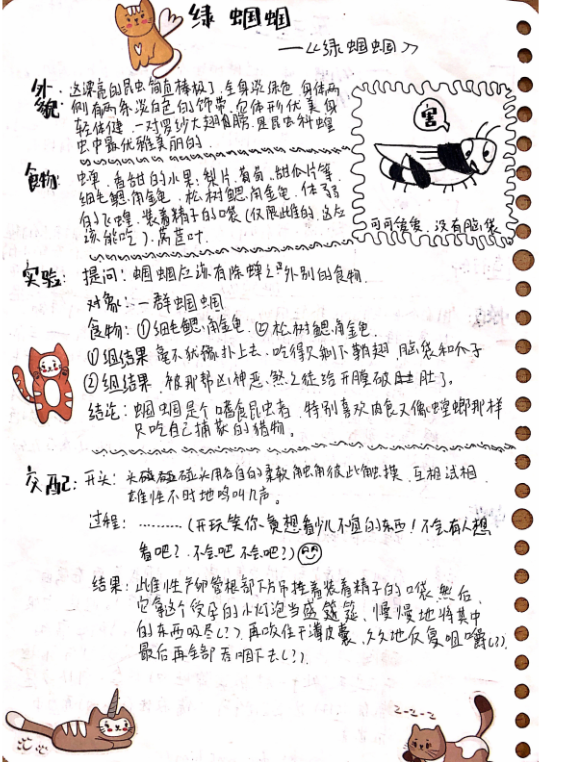 绿蝈蝈
—《绿蝈蝈》
外貌：这漂亮的昆虫简直棒极了，全身淡绿色，身体两
侧有两条淡白色的饰带，它体形优美，身
轻体健，一对罗纱大翅膀，是昆科蝗
虫中最优雅美丽的
害
可可爱爱，没有脑袋
食物：蝉，香甜的水果：梨片、葡萄、甜瓜片等，
细毛鳃角金龟，松树鳃角金龟，体弱
的飞蝗，装着精子的口袋（仅限雌的，这应
该能吃），莴苣叶.
实验：提问：蝈蝈应该有除蝉之外别的食物.
对象：一群蝈蝈
食物：①细毛鳃角金龟 ②松树鳃角金龟.
①组结果 毫不犹豫扑上去、吃得只剩下鞘翅、脑袋和爪子
②组结果 被那帮凶神恶煞之徒给开膛破肚了。
结论：蝈蝈是个嗜食昆虫者，特别喜欢肉食又像螳螂那样
只吃自己捕获的猎物。
交配：开头：头碰头用各自的柔软触角彼此触摸，互相试相
雄性不时地鸣叫几声。
过程：………（开玩笑你竟想看少儿不宜的东西！不会有人想
看吧？不会吧不会吧？）
结果：此雌性产卵管根部下方吊挂着装着精子的口袋，然后，
它拿这个受孕的小灯泡当盛筵，慢慢地将其中
的东西吸尽(?)，再咬住干薄皮囊，久久地反复咀嚼(?),
最后再全部吞咽下去(?).
z-z-z